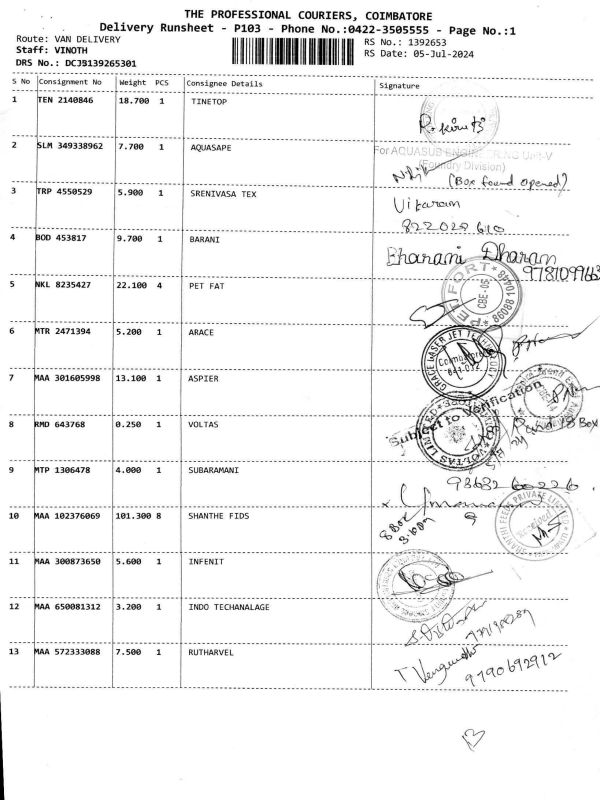 THE PROFESSIONAL COURIERS, COIMBATORE
Delivery Runsheet - P103 - Phone No.:0422-3505555 - Page No.:1
Route: VAN DELIVERY
RS No.: 1392653
Staff: VINOTH
RS Date: 05-Jul-2024
DRS No.: DCJB139265301
S No Consignment No Weight PCS Consignee Details Signature
1 TEN 2140846 18.700 1 TINETOP
2 SLM 349338962 7.700 1 AQUASAPE
For AQUASUB ENGINEERING Unit-V
(Foundry Division)
(Box found opened)
3 TRP 4550529 5.900 1 SRENIVASA TEX
Vikaram
4 BOD 453817 9.700 1 BARANI
Bharani Dharan
5 NKL 8235427 22.100 4 PET FAT
PET FORT
CBE-05
6 MTR 2471394 5.200 1 ARACE
GRACE LASER JET TECHNOLOGY
Coimbatore
641 012
7 MAA 301605998 13.100 1 ASPIER
Subject to Verification
8 RMD 643768 0.250 1 VOLTAS
VOLTAS LIMITED
9 MTP 1306478 4.000 1 SUBARAMANI
10 MAA 102376069 101.300 8 SHANTHE FIDS
8 Box
SHANTHI FEEDS PRIVATE LIMITED
Received
11 MAA 300873650 5.600 1 INFENIT
12 MAA 650081312 3.200 1 INDO TECHANALAGE
13 MAA 572333088 7.500 1 RUTHARVEL
9790692912
13